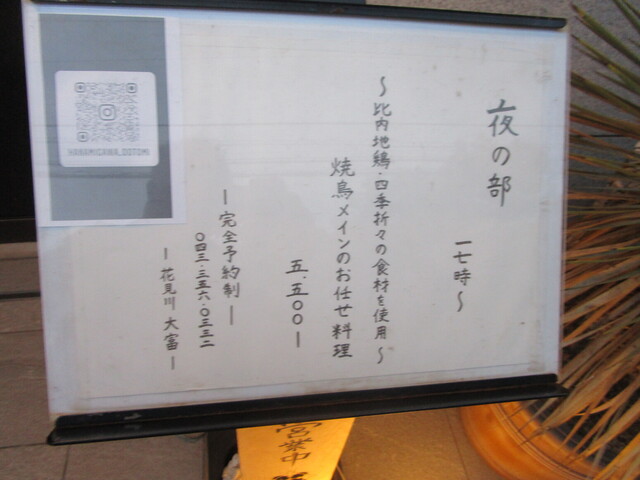 夜の部
一七時〜
〜比内地鶏・四季折々の食材を使用〜
焼鳥メインのお任せ料理
五、五〇〇ー
ー完全予約制ー
〇四三・三五六・〇三三二
ー花見川 大富ー
HANAMIGAWA_OOTOMI
営業中